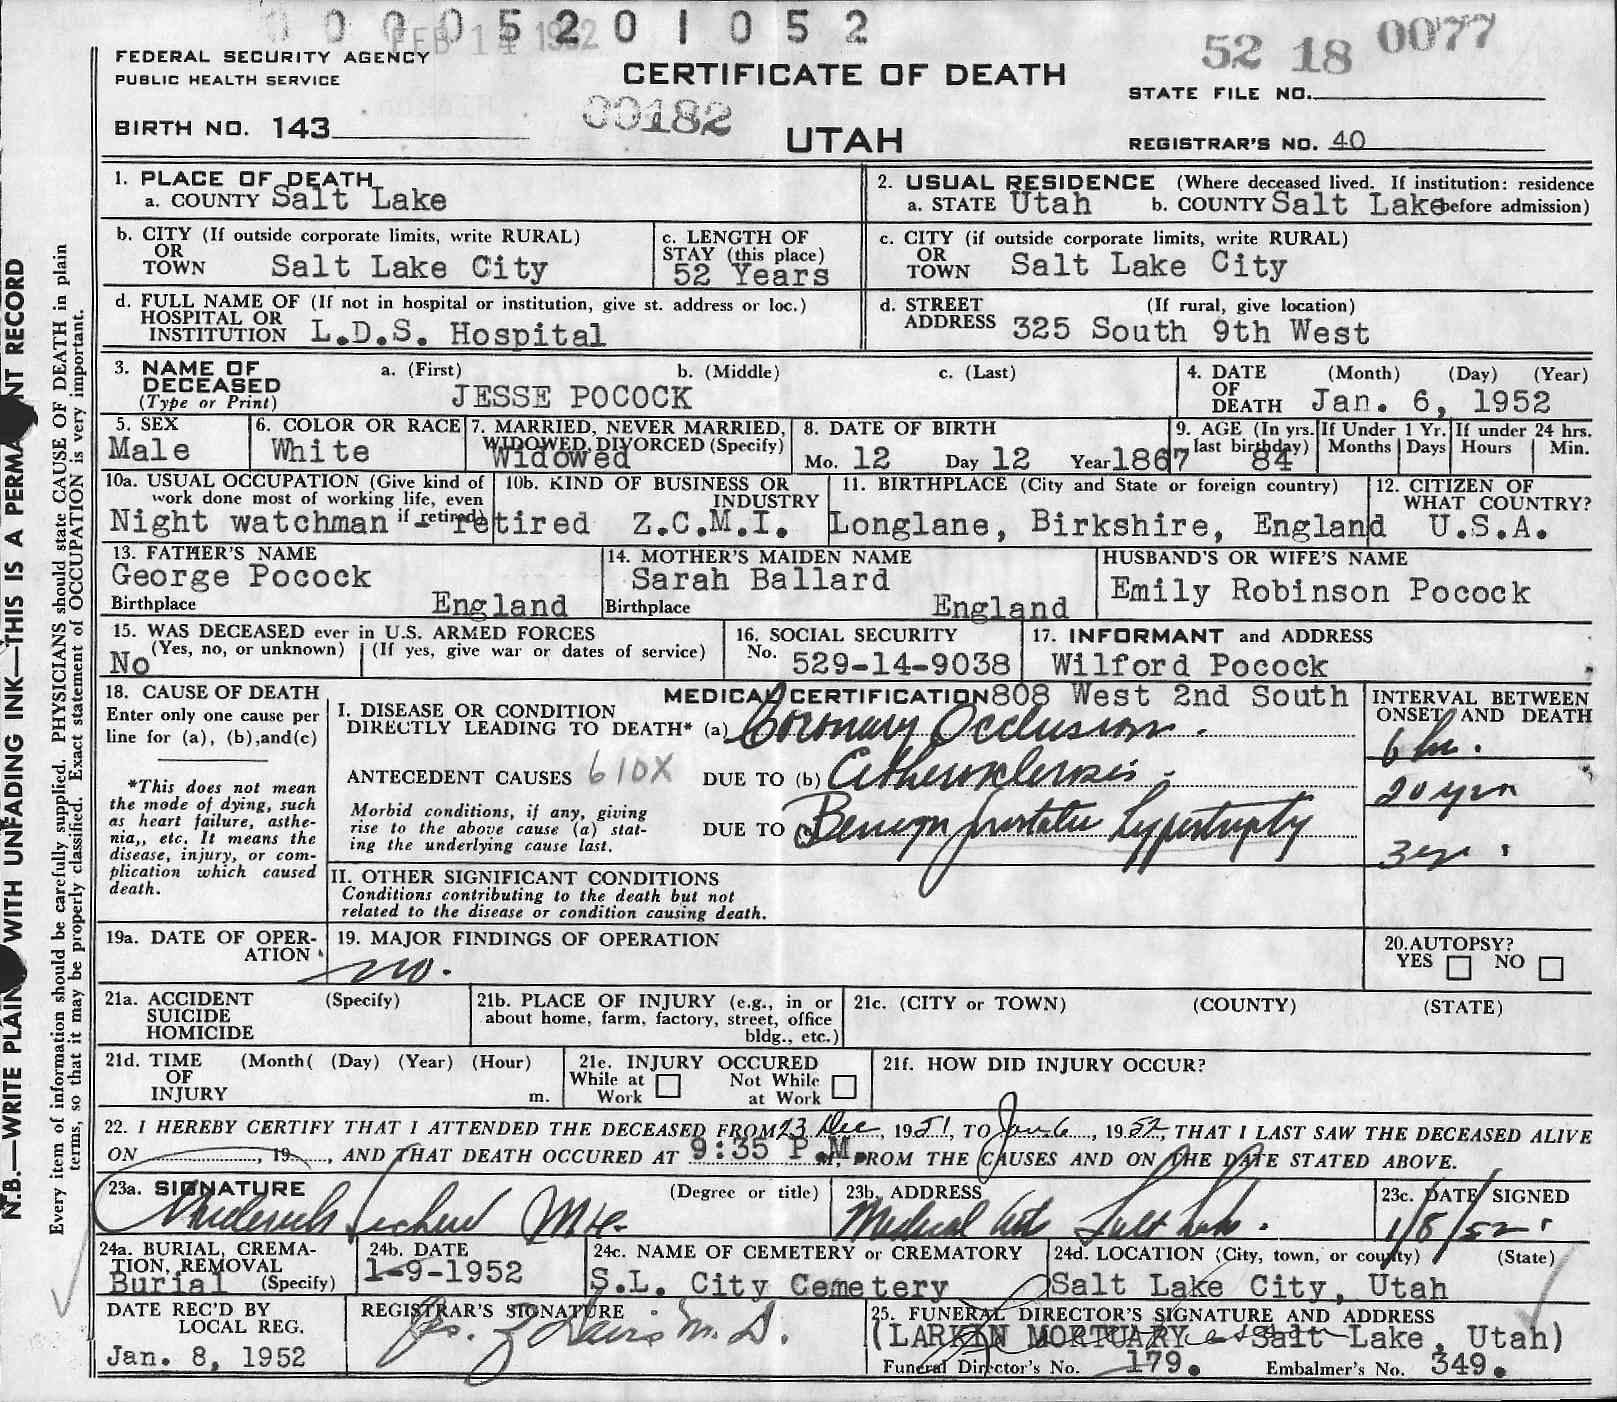 0 0 0 0 5 2 0 1 0 5 2
FEB 14 1952
52 18 0077
FEDERAL SECURITY AGENCY
PUBLIC HEALTH SERVICE
CERTIFICATE OF DEATH
STATE FILE NO.
BIRTH NO. 143
00182
UTAH
REGISTRAR'S NO. 40
1. PLACE OF DEATH
a. COUNTY Salt Lake
2. USUAL RESIDENCE (Where deceased lived. If institution: residence
a. STATE Utah b. COUNTY Salt Lake before admission)
b. CITY (If outside corporate limits, write RURAL)
OR
TOWN Salt Lake City
c. LENGTH OF
STAY (this place)
52 Years
c. CITY (if outside corporate limits, write RURAL)
OR
TOWN Salt Lake City
d. FULL NAME OF (If not in hospital or institution, give st. address or loc.)
HOSPITAL OR
INSTITUTION L.D.S. Hospital
d. STREET (If rural, give location)
ADDRESS 325 South 9th West
3. NAME OF a. (First) b. (Middle) c. (Last)
DECEASED
(Type or Print) JESSE POCOCK
4. DATE (Month) (Day) (Year)
OF
DEATH Jan. 6, 1952
5. SEX
Male
6. COLOR OR RACE
White
7. MARRIED, NEVER MARRIED,
WIDOWED, DIVORCED (Specify)
Widowed
8. DATE OF BIRTH
Mo. 12 Day 12 Year 1867
9. AGE (In yrs.
last birthday)
84
If Under 1 Yr.
Months Days
If under 24 hrs.
Hours Min.
10a. USUAL OCCUPATION (Give kind of
work done most of working life, even
if retired)
Night watchman - retired
10b. KIND OF BUSINESS OR
INDUSTRY
Z.C.M.I.
11. BIRTHPLACE (City and State or foreign country)
Longlane, Birkshire, England
12. CITIZEN OF
WHAT COUNTRY?
U.S.A.
13. FATHER'S NAME
George Pocock
Birthplace England
14. MOTHER'S MAIDEN NAME
Sarah Ballard
Birthplace England
HUSBAND'S OR WIFE'S NAME
Emily Robinson Pocock
15. WAS DECEASED ever in U.S. ARMED FORCES
(Yes, no, or unknown) (If yes, give war or dates of service)
No
16. SOCIAL SECURITY
No. 529-14-9038
17. INFORMANT and ADDRESS
Wilford Pocock
808 West 2nd South
18. CAUSE OF DEATH
Enter only one cause per
line for (a), (b),and(c)
*This does not mean
the mode of dying, such
as heart failure, asthe-
nia,, etc. It means the
disease, injury, or com-
plication which caused
death.
MEDICAL CERTIFICATION
I. DISEASE OR CONDITION
DIRECTLY LEADING TO DEATH* (a) Coronary Occlusion.
ANTECEDENT CAUSES 610X DUE TO (b) Atherosclerosis.
Morbid conditions, if any, giving
rise to the above cause (a) stat-
ing the underlying cause last.
DUE TO (c) Benign prostatic hypertrophy
INTERVAL BETWEEN
ONSET AND DEATH
6 hr.
20 yrs
3 yr.
II. OTHER SIGNIFICANT CONDITIONS
Conditions contributing to the death but not
related to the disease or condition causing death.
19a. DATE OF OPER-
ATION
19. MAJOR FINDINGS OF OPERATION
no.
20. AUTOPSY?
YES NO
21a. ACCIDENT (Specify)
SUICIDE
HOMICIDE
21b. PLACE OF INJURY (e.g., in or
about home, farm, factory, street, office
bldg., etc.)
21c. (CITY or TOWN) (COUNTY) (STATE)
21d. TIME (Month( (Day) (Year) (Hour)
OF
INJURY m.
21e. INJURY OCCURED
While at Work Not While at Work
21f. HOW DID INJURY OCCUR?
22. I HEREBY CERTIFY THAT I ATTENDED THE DECEASED FROM 23 Dec, 1951, TO Jan 6, 1952, THAT I LAST SAW THE DECEASED ALIVE
ON , 19 , AND THAT DEATH OCCURED AT 9:35 P.M., FROM THE CAUSES AND ON THE DATE STATED ABOVE.
23a. SIGNATURE (Degree or title)
23b. ADDRESS
Medical Arts Salt Lake.
23c. DATE SIGNED
1/8/52
24a. BURIAL, CREMA-
TION, REMOVAL
Burial (Specify)
24b. DATE
1-9-1952
24c. NAME OF CEMETERY or CREMATORY
S.L. City Cemetery
24d. LOCATION (City, town, or county) (State)
Salt Lake City, Utah
DATE REC'D BY
LOCAL REG.
Jan. 8, 1952
REGISTRAR'S SIGNATURE
25. FUNERAL DIRECTOR'S SIGNATURE AND ADDRESS
(LARKIN MORTUARY Salt Lake, Utah)
Funeral Director's No. 179. Embalmer's No. 349.
N.B.—WRITE PLAIN WITH UNFADING INK—THIS IS A PERMA NT RECORD
Every item of information should be carefully supplied. PHYSICIANS should state CAUSE OF DEATH in plain
terms, so that it may be properly classified. Exact statement of OCCUPATION is very important.